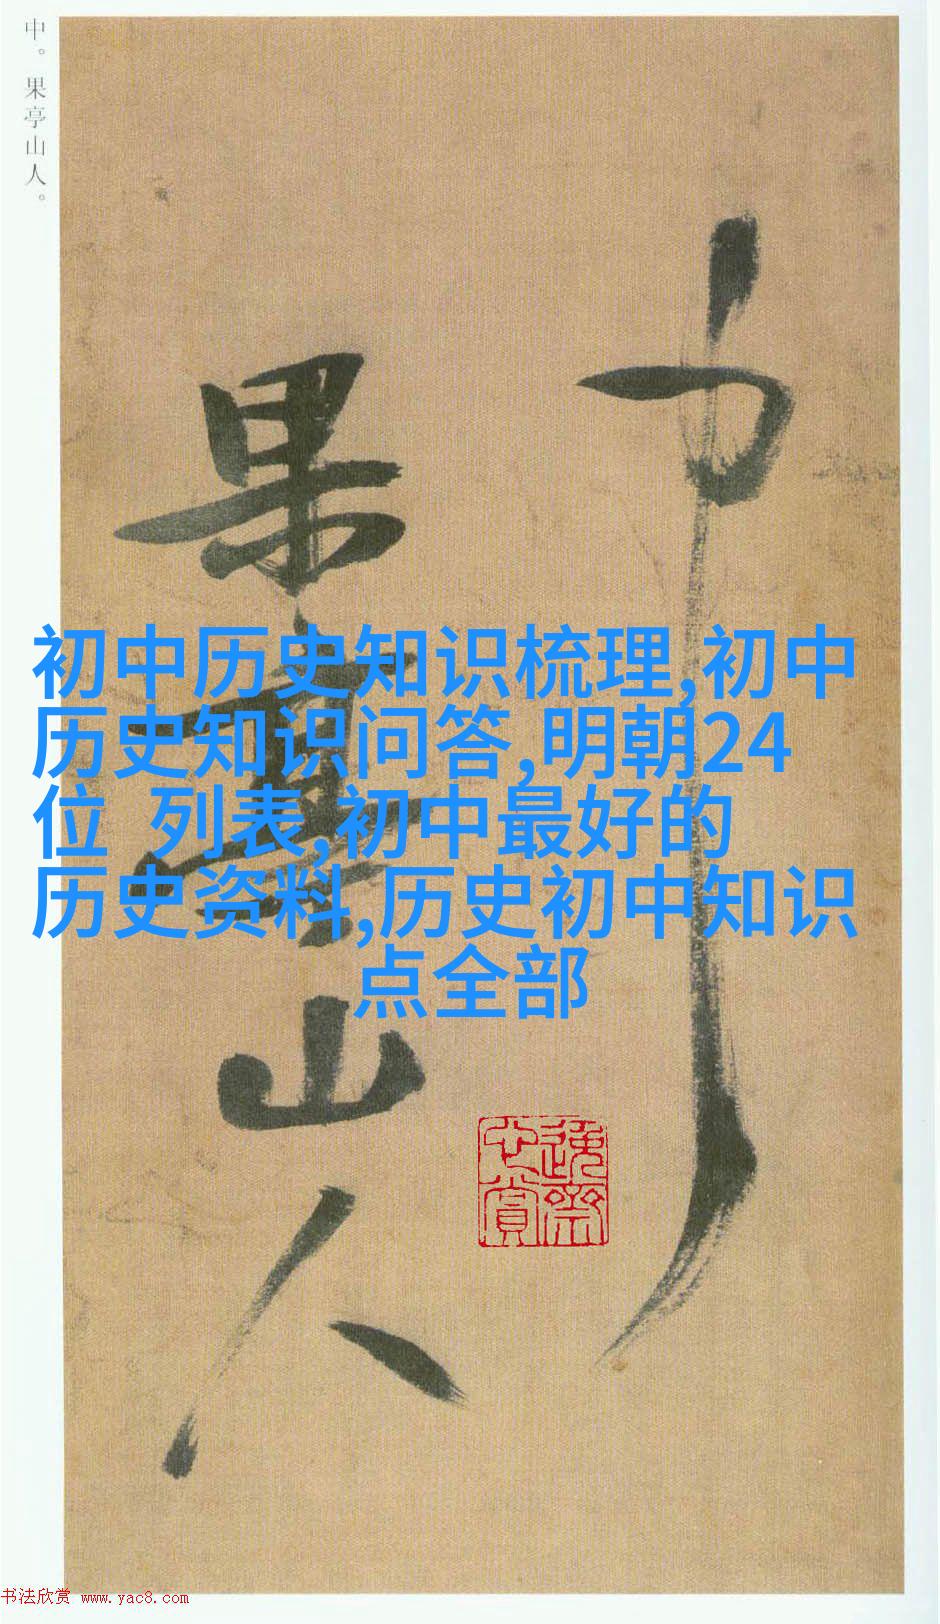 中。果亭山人。
中
果亭山人
初中历史知识梳理,初中
历史知识问答,明朝24
位 列表,初中最好的
历史资料,历史初中知识
点全部
逸齋
心賞
书法欣赏 www.yac8.com